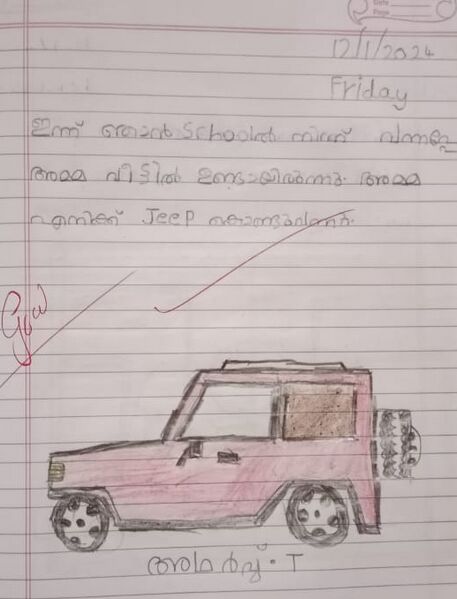 Date
Page
12/1/2024
Friday
ഇന്ന് ഞാൻ Schoolൽ നിന്ന് വന്നപ്പോ
അമ്മ വീട്ടിൽ ഉണ്ടായിരുന്നു. അമ്മ
എനിക്ക് Jeep കൊണ്ടുവന്നു.
Good
T